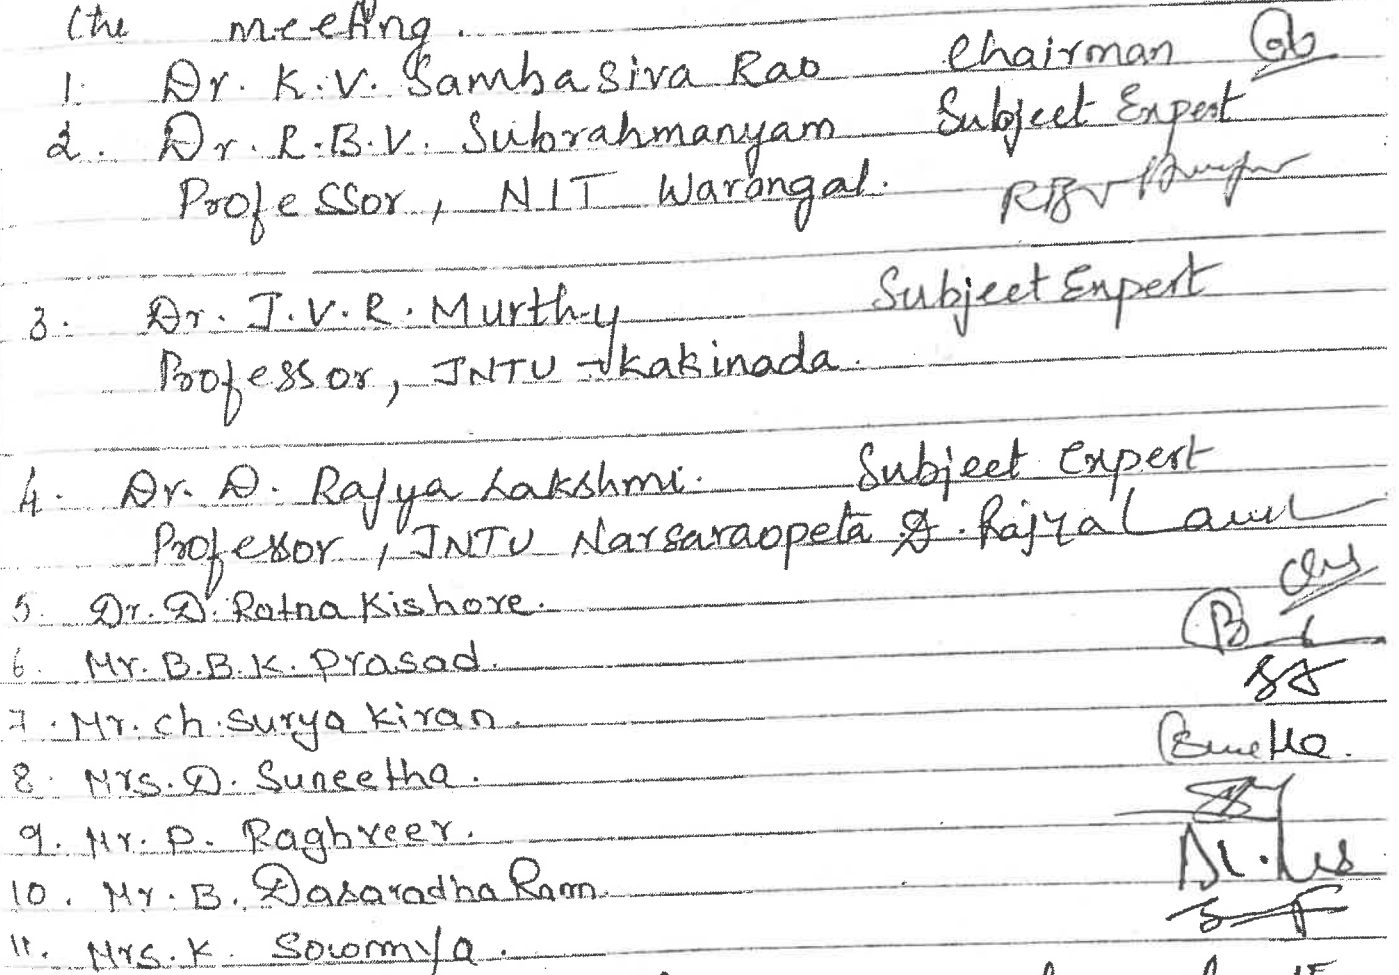 the meeting.
1. Dr. K.V. Sambasiva Rao Chairman
2. Dr. R.B.V. Subrahmanyam Subject Expert
Professor, NIT Warangal.
3. Dr. J.V.R. Murthy Subject Expert
Professor, JNTU - Kakinada.
4. Dr. D. Rajya Lakshmi. Subject Expert
Professor, JNTU Narsaraopeta D. Rajya
5. Dr. D. Ratna Kishore.
6. Mr. B.B.K. Prasad.
7. Mr. Ch. Surya Kiran.
8. Mrs. D. Suneetha.
9. Mr. P. Raghveer.
10. Mr. B. Dasaradha Ram.
11. Mrs. K. Sowmya.